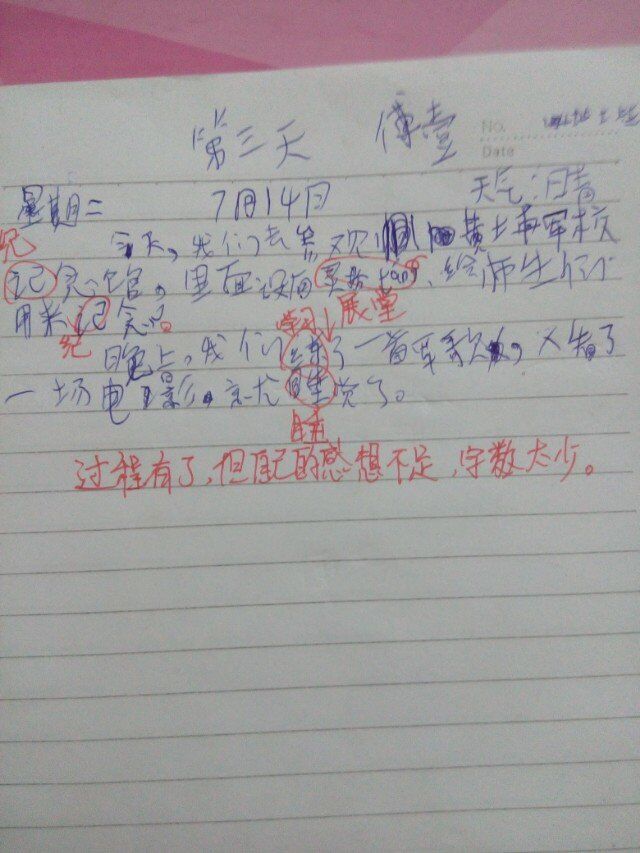 第三天
No.
Date
星期二 7月14日 天气:晴
纪
今天,我们去参观 黄埔军校
记念馆,里面设有 tang,给师生们
用来记念。
纪
学习
展堂
晚上,我们练了一首军歌,又看了
一场电影,就睡觉了。
过程有了,但自己的感想不足,字数太少。